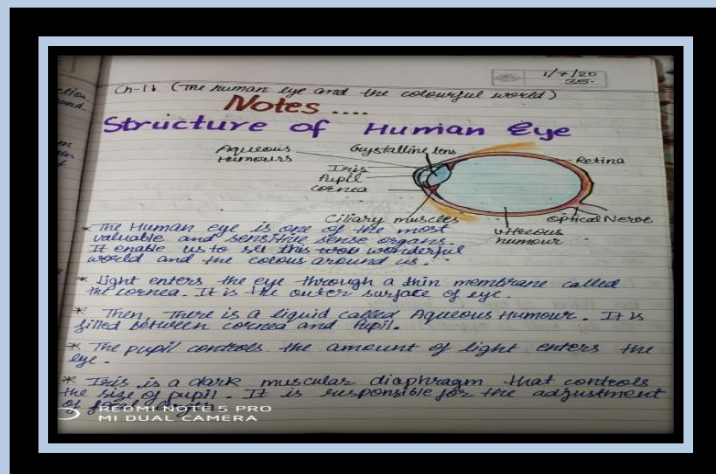 1/7/20
25-
Ch-11 (The human eye and the colourful world)
Notes ....
Structure of Human Eye
Aqueous
Humours
Crystalline lens
Iris
Pupil
Cornea
Retina
Ciliary muscles
Optical Nerve
Vitreous
humour
* The Human eye is one of the most
valuable and sensitive sense organs.
It enable us to see this wonderful
world and the colous around us.
* Light enters the eye through a thin membrane called
the cornea. It is the outer surface of eye.
* Then, There is a liquid called Aqueous Humour. It is
filled between cornea and Pupil.
* The pupil controls the amount of light enters the
eye.
* Iris is a dark muscular diaphragm that controls
the size of pupil. It is responsible for the adjustment
of
REDMI NOTE 5 PRO
MI DUAL CAMERA